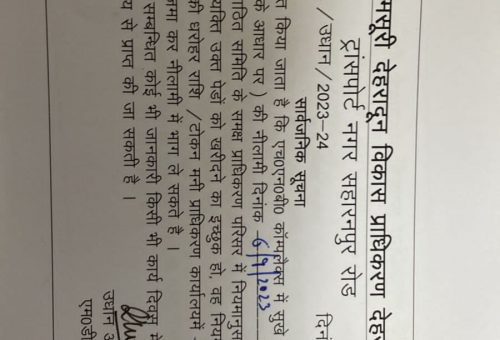 मसूरी देहरादून विकास प्राधिकरण देहर
ट्रांसपोर्ट नगर सहारनपुर रोड
/ उद्यान / 2023–24
दिनां
सार्वजनिक सूचना
त किया जाता है कि एच०एन०बी० कॉम्पलैक्स में सुखे
के आधार पर ) की नीलामी दिनांक 6/9/2023
गठित समिति के समक्ष प्राधिकरण परिसर में नियमानुस
यक्ति उक्त पेड़ों को खरीदने का इच्छुक हो, वह निय
की धरोहर राशि /टोकन मनी प्राधिकरण कार्यालयमें
जमा कर नीलामी में भाग ले सकते है ।
सम्बधित कोई भी जानकारी किसी भी कार्य दिवस में
य से प्राप्त की जा सकती है ।
उद्यान अ
एम०डी